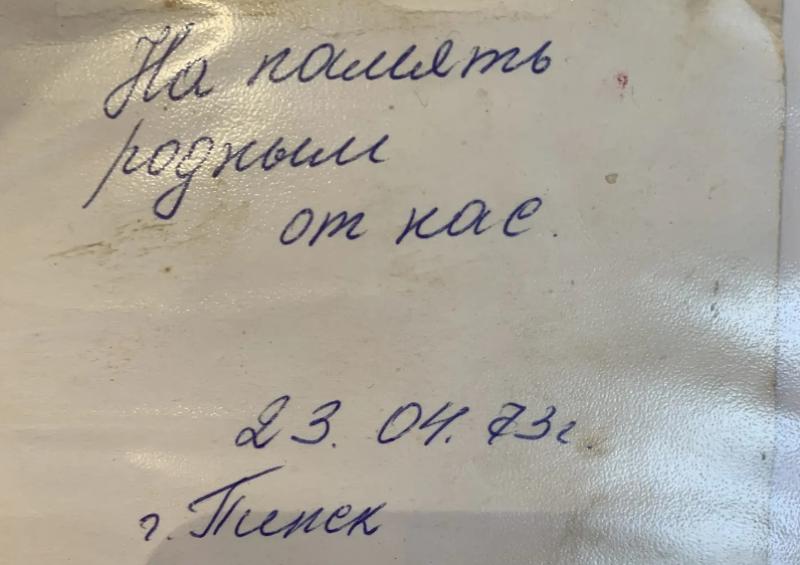 На память
родным
от нас.
23.04.73г.
г. Пинск